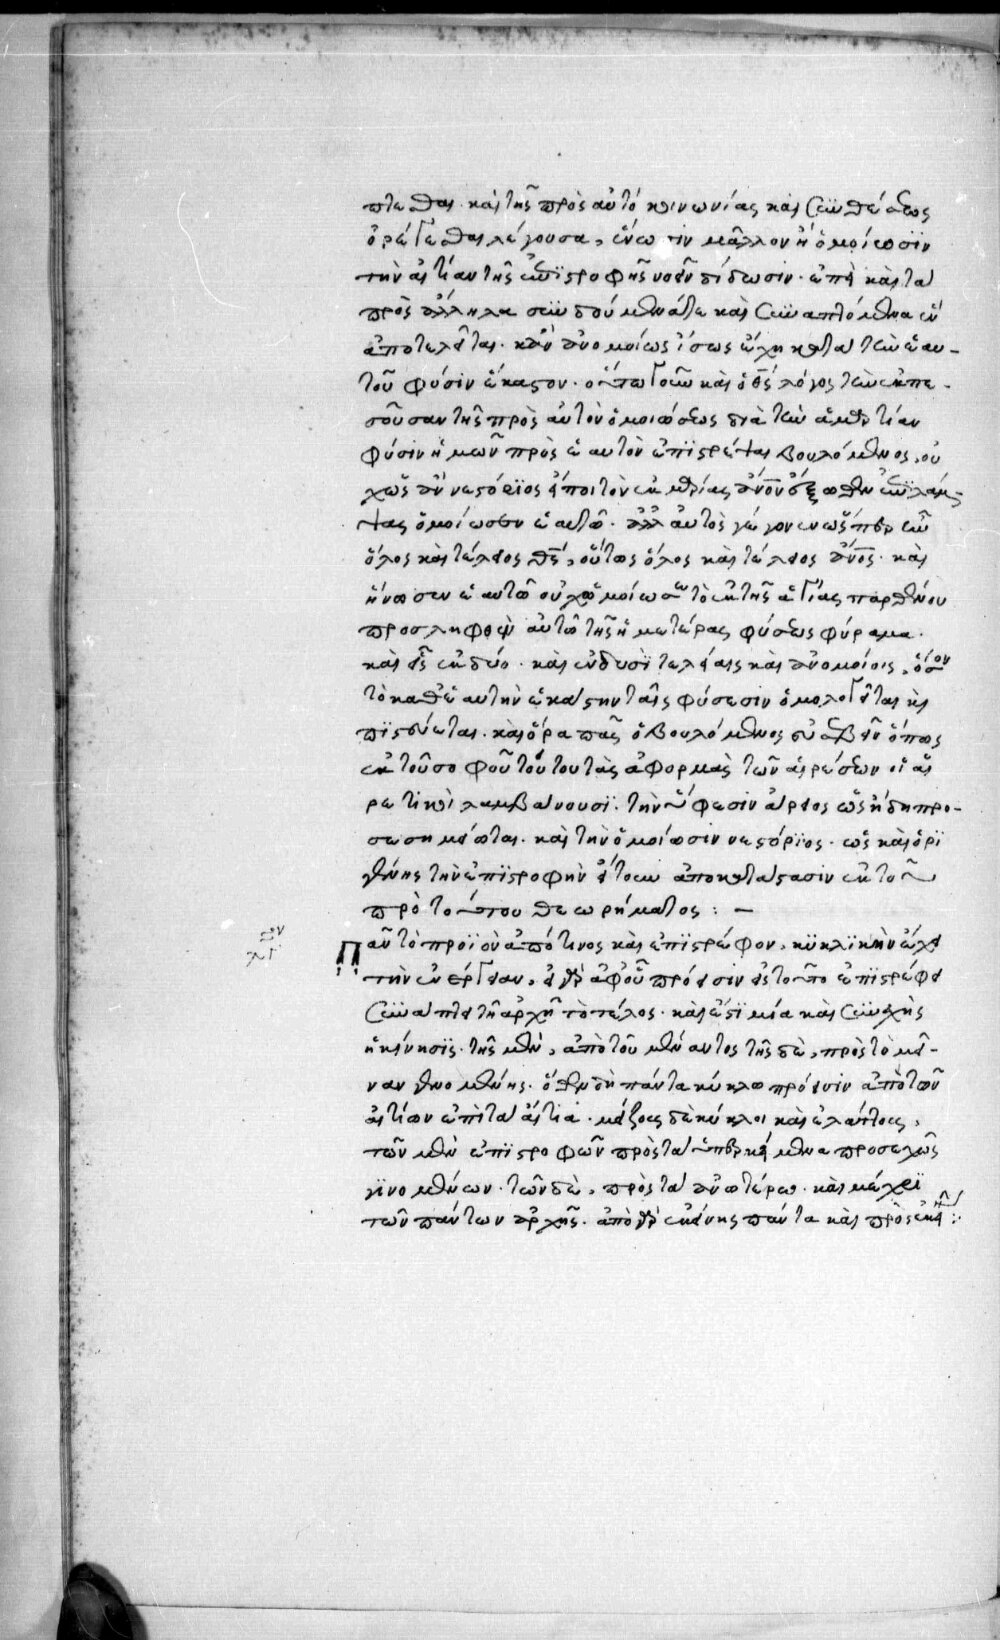 πτεσθαι καὶ τῆς πρὸς αὐτὸ κοινωνίας καὶ συνθέσεως
ὀρέγεσθαι λέγουσα, ἕνωσιν μᾶλλον ἢ ὁμοίωσιν
τὴν αἰτίαν τῆς ἐπιστροφῆς νοεῖν δίδωσιν· ἐπεὶ καὶ τὰ
πρὸς ἄλληλα συνδούμενά τε καὶ συναπτόμενα ἓν
ἀποτελεῖται· κἂν ἀνομοίως ἴσως ἔχῃ κατὰ τὴν ἑαυ-
τοῦ φύσιν ἕκαστον· οὕτω γοῦν καὶ ὁ θ̅ς̅ λόγος τὴν ἐκπε-
σοῦσαν τῆς πρὸς αὐτὸν ὁμοιώσεως διὰ τὴν ἁμαρτίαν
φύσιν ἡμῶν πρὸς ἑαυτὸν ἐπιστρέψαι βουλόμενος, οὐ
χ ὡς ἂν νεστόριος εἴποι τὸν ἐκ μαρίας ἄ̅ν̅ο̅ν̅ ἔξωθεν ἐπιλάμ-
ψας ὁμοίωσεν ἑαυτῷ· ἀλλ' αὐτὸς γέγονεν ὥσπερ ἦν
ὅλος καὶ τέλειος θ̅ς̅, οὕτως ὅλος καὶ τέλειος ἄ̅ν̅ο̅ς̅· καὶ
ἥνωσεν ἑαυτῷ οὐχ ὡμοίωσε τὸ ἐκ τῆς ἁγίας παρθένου
προσληφθὲν αὐτῷ τῆς ἡμετέρας φύσεως φύραμα·
καὶ εἷς ἐκ δύο· καὶ ἐν δυσὶ τελείαις καὶ ἀνομοίοις, ὅσον
τὸ καθ' ἑαυτὴν ἑκάστην ταῖς φύσεσιν ὁμολογεῖται καὶ
πιστεύεται· καὶ ὅρα πᾶς ὁ βουλόμενος εὐσεβεῖν ὅπως
ἐκ τοῦ σοφοῦ τούτου τὰς ἀφορμὰς τῶν αἱρέσεων οἱ αἱ
ρετικοὶ λαμβάνουσι· τὴν ὕφεσιν ἄρειος ὡς ἤδη προ-
σεσημείωται· καὶ τὴν ὁμοίωσιν νεστόριος· ὡς καὶ ὠρι
γένης τὴν ἐπιστροφὴν εἴτουν ἀποκατάστασιν ἐκ τοῦ
πρὸ τούτου θεωρήματος: —
Πᾶν τὸ προϊὸν ἀπό τινος καὶ ἐπιστρέφον, κυκλικὴν ἔχει
τὴν ἐνέργειαν, εἰ γὰρ ἀφ' οὗ πρόεισιν εἰς τοῦτο ἐπιστρέφει
συνάπτει τῇ ἀρχῇ τὸ τέλος· καὶ ἔστι μία καὶ συνεχὴς
ἡ κίνησις· τῆς μὲν, ἀπὸ τοῦ μένοντος τῆς δὲ, πρὸς τὸ μεῖ-
ναν γενομένης· ὅθεν δὴ πάντα κύκλῳ πρόεισιν ἀπὸ τῶν
αἰτίων ἐπὶ τὰ αἴτια· μείζους δὲ κύκλοι καὶ ἐλάττους,
τῶν μὲν ἐπιστροφῶν πρὸς τὰ ὑπερκείμενα προσεχῶς
γινομένων· τῶν δὲ, πρὸς τὰ ἀνωτέρω· καὶ μέχρι
τῶν πάντων ἀρχῆς· ἀπὸ γὰρ ἐκείνης πάντα καὶ πρὸς ἐκείνην: